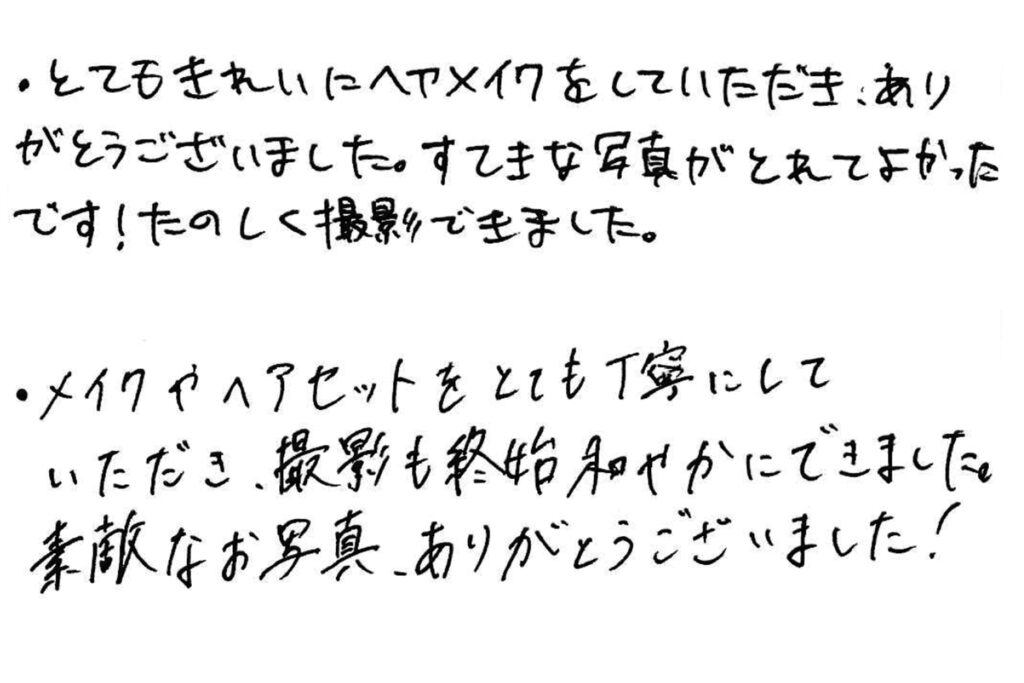 ・とてもきれいにヘアメイクをしていただき、あり
がとうございました。すてきな写真がとれてよかった
です！たのしく撮影できました。
・メイクやヘアセットをとても丁寧にして
いただき、撮影も終始和やかにできました。
素敵なお写真、ありがとうございました！